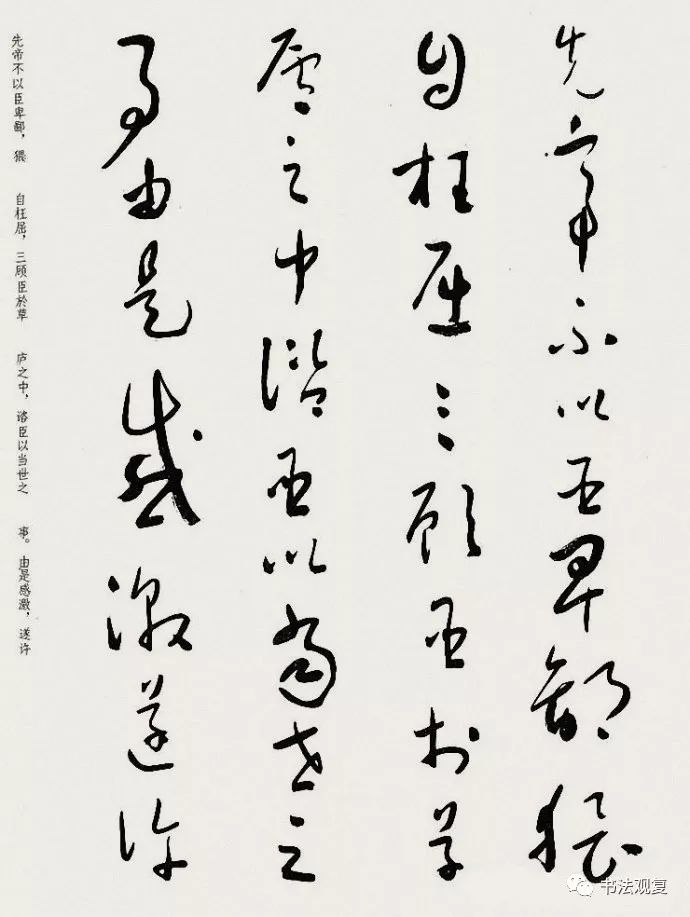 先帝不以臣卑鄙猥
自枉屈三顾臣於草
庐之中谘臣以当世之
事由是感激遂许
先帝不以臣卑鄙，猥 自枉屈，三顾臣於草 庐之中，谘臣以当世之 事。由是感激，遂许
书法观复